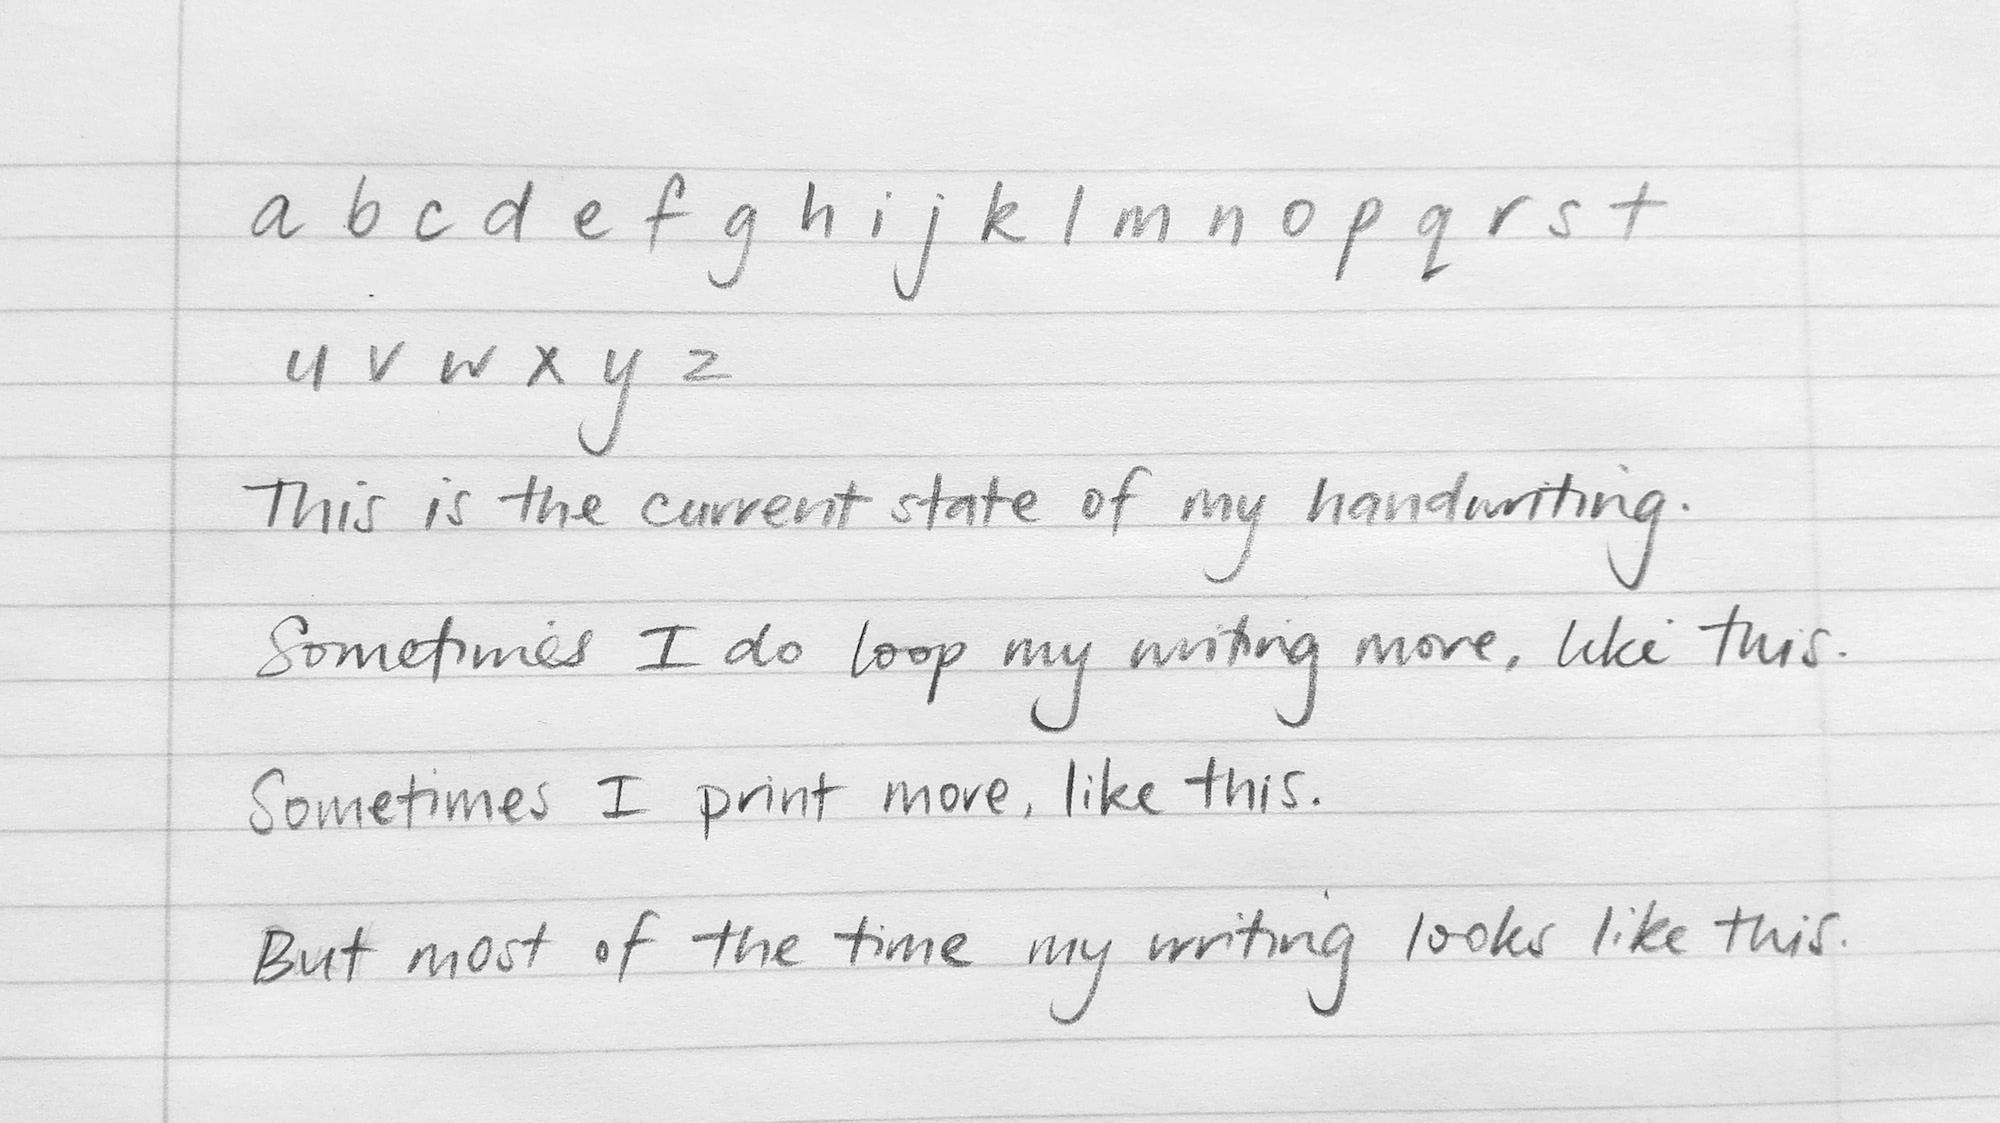 a b c d e f g h i j k l m n o p q r s t
u v w x y z
This is the current state of my handwriting.
Sometimes I do loop my writing more, like this.
Sometimes I print more, like this.
But most of the time my writing looks like this.